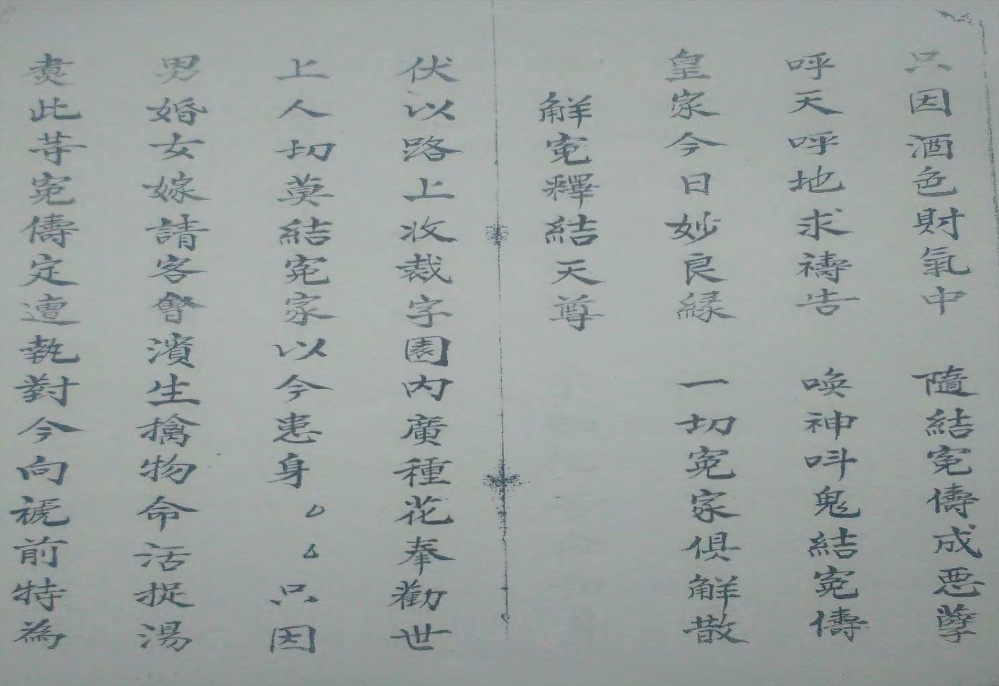 只因酒色財氣中　隨結寃儔成悪孽
呼天呼地求禱告　喚神呌鬼結寃儔
皇家今日妙良緣　一切寃家俱解散
解寃釋結天尊
伏以路上收裁字園內廣種花奉勸世
上人切莫結寃家以今患身　只因
男婚女嫁請客會濱生擒物命活捉湯
此等寃儔定遭執對今向禠前特為